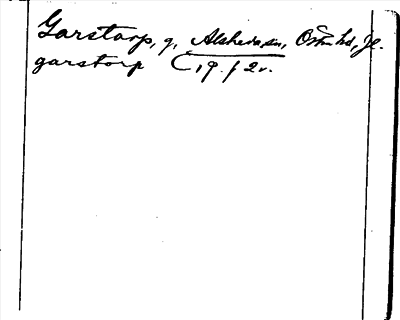 Garstorp, g, Alsheda sn, Östra hd, Jl.
garstorp C 19. f 2v.